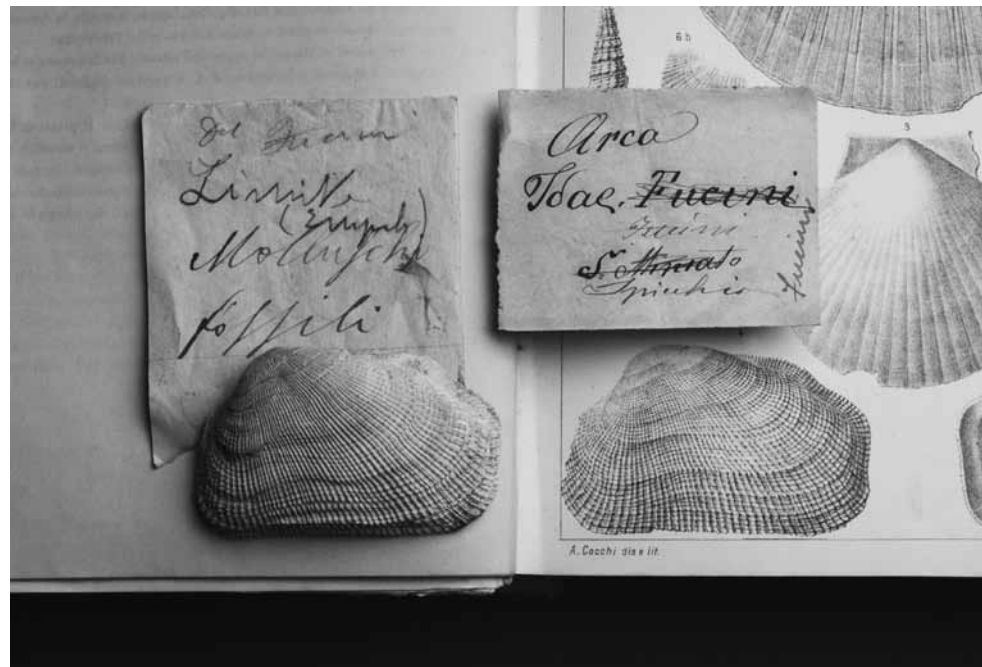 Del Fucini
Limite
(Empoli)
Molluschi
fossili
Arca
Idae. Fucini
Fucini
S. Miniato
Spicchio
Fucini
6 b
5
A. Cocchi dis e lit.